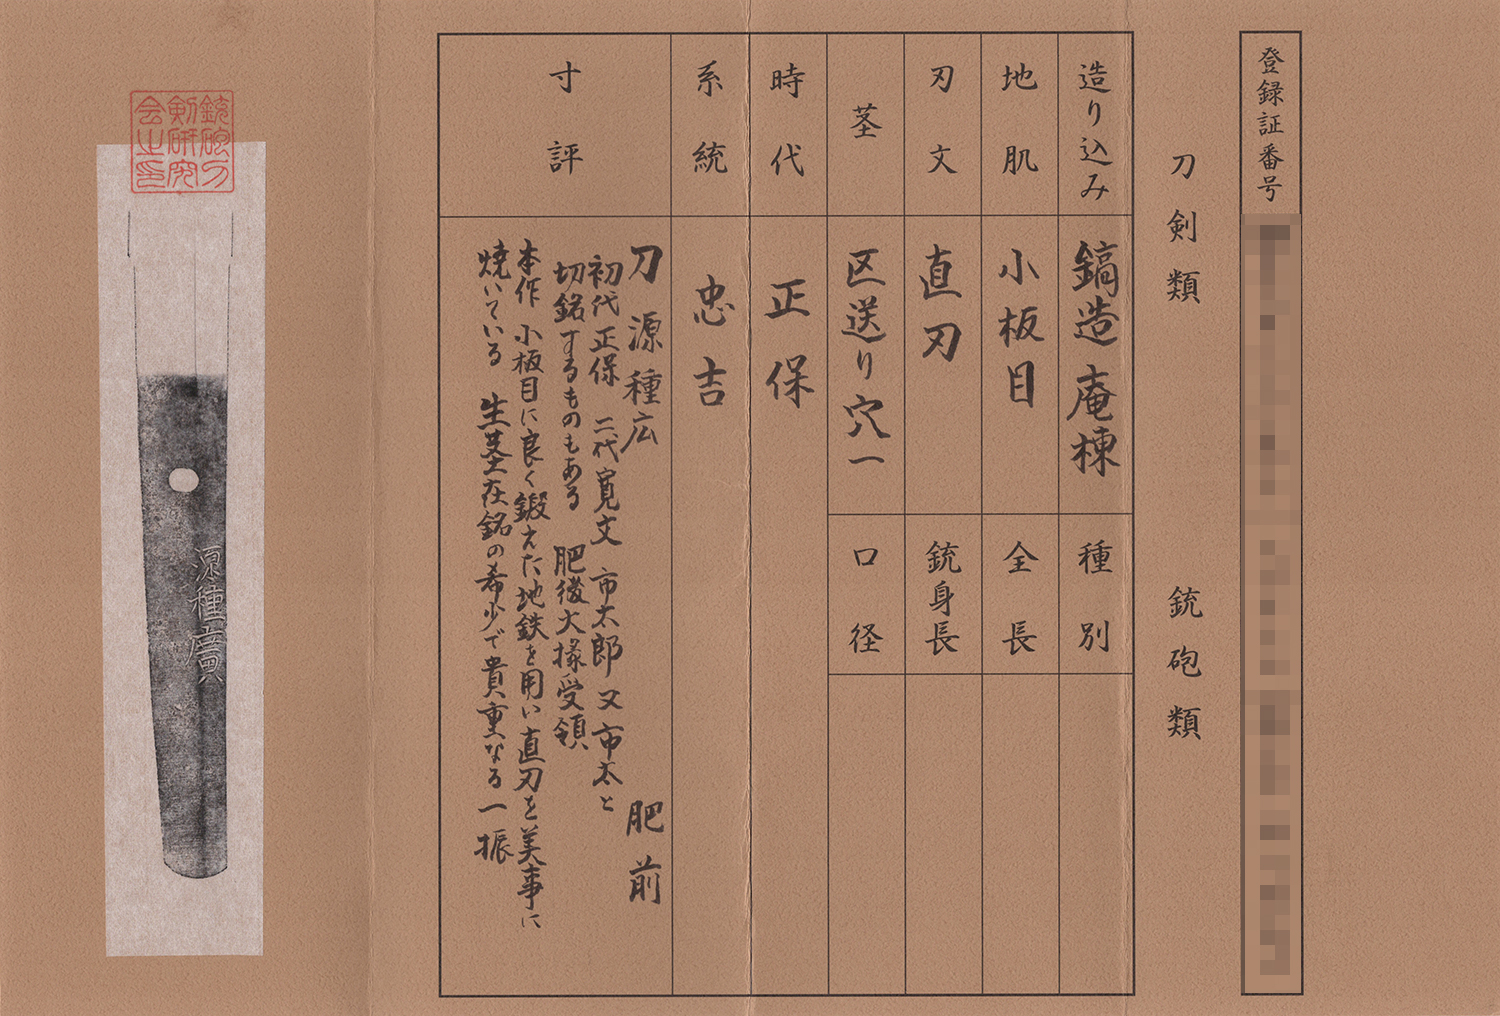 登録証番号
刀剣類
銃砲類
造り込み
鎬造庵棟
種別
地肌
小板目
全長
刃文
直刃
銃身長
茎
区送り穴一
口径
時代
正保
系統
忠吉
寸評
刀 源種広 肥前
初代正保 二代寛文 市太郎又市太と
切銘するものもある 肥後大掾受領
本作 小板目に良く鍛えた地鉄を用い直刃を美事に
焼いている 生茎在銘の希少で貴重なる一振
銃砲刀
剣研究
会之印
源種廣